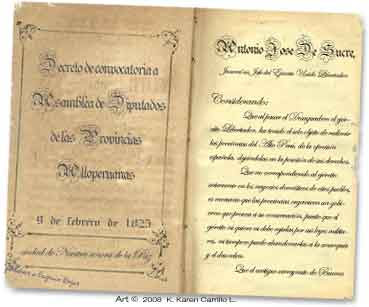 Decreto de convocatoria a
Asamblea de Diputados
de las Provincias
Altoperuanas
9 de febrero de 1825
ciudad de Nuestra señora de la Paz
Antonio Jose De Sucre,
Jeneral en Jefe del Ejercito Unido Libertador
Considerando:
Que al pasar el Desaguadero el ejer-
cito Libertador, ha tenido el solo objeto de redimir
las provincias del Alto Perú, de la opresión
española, dejándolas en la posesión de sus derechos.
Que no correspondiendo al ejército
intervenir en los negocios domésticos de estos pueblos,
es necesario que las provincias organicen un gobi-
erno que provea a su conservación, puesto que el
ejército ni quiere ni debe regirlas por sus leyes milita-
res, ni tampoco puede abandonarlas a la anarquía
y el desorden.
Que el antiguo virreynato de Buenos
Art © 2008 K. Karen Carrillo L.